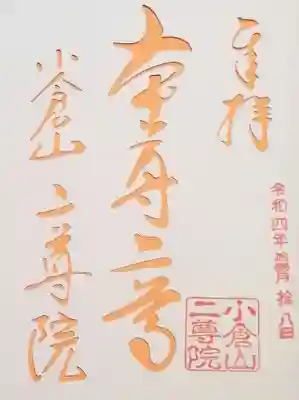 奉拝
本尊二尊
小倉山 二尊院
令和四年 月 拾八日
小倉山
二尊院